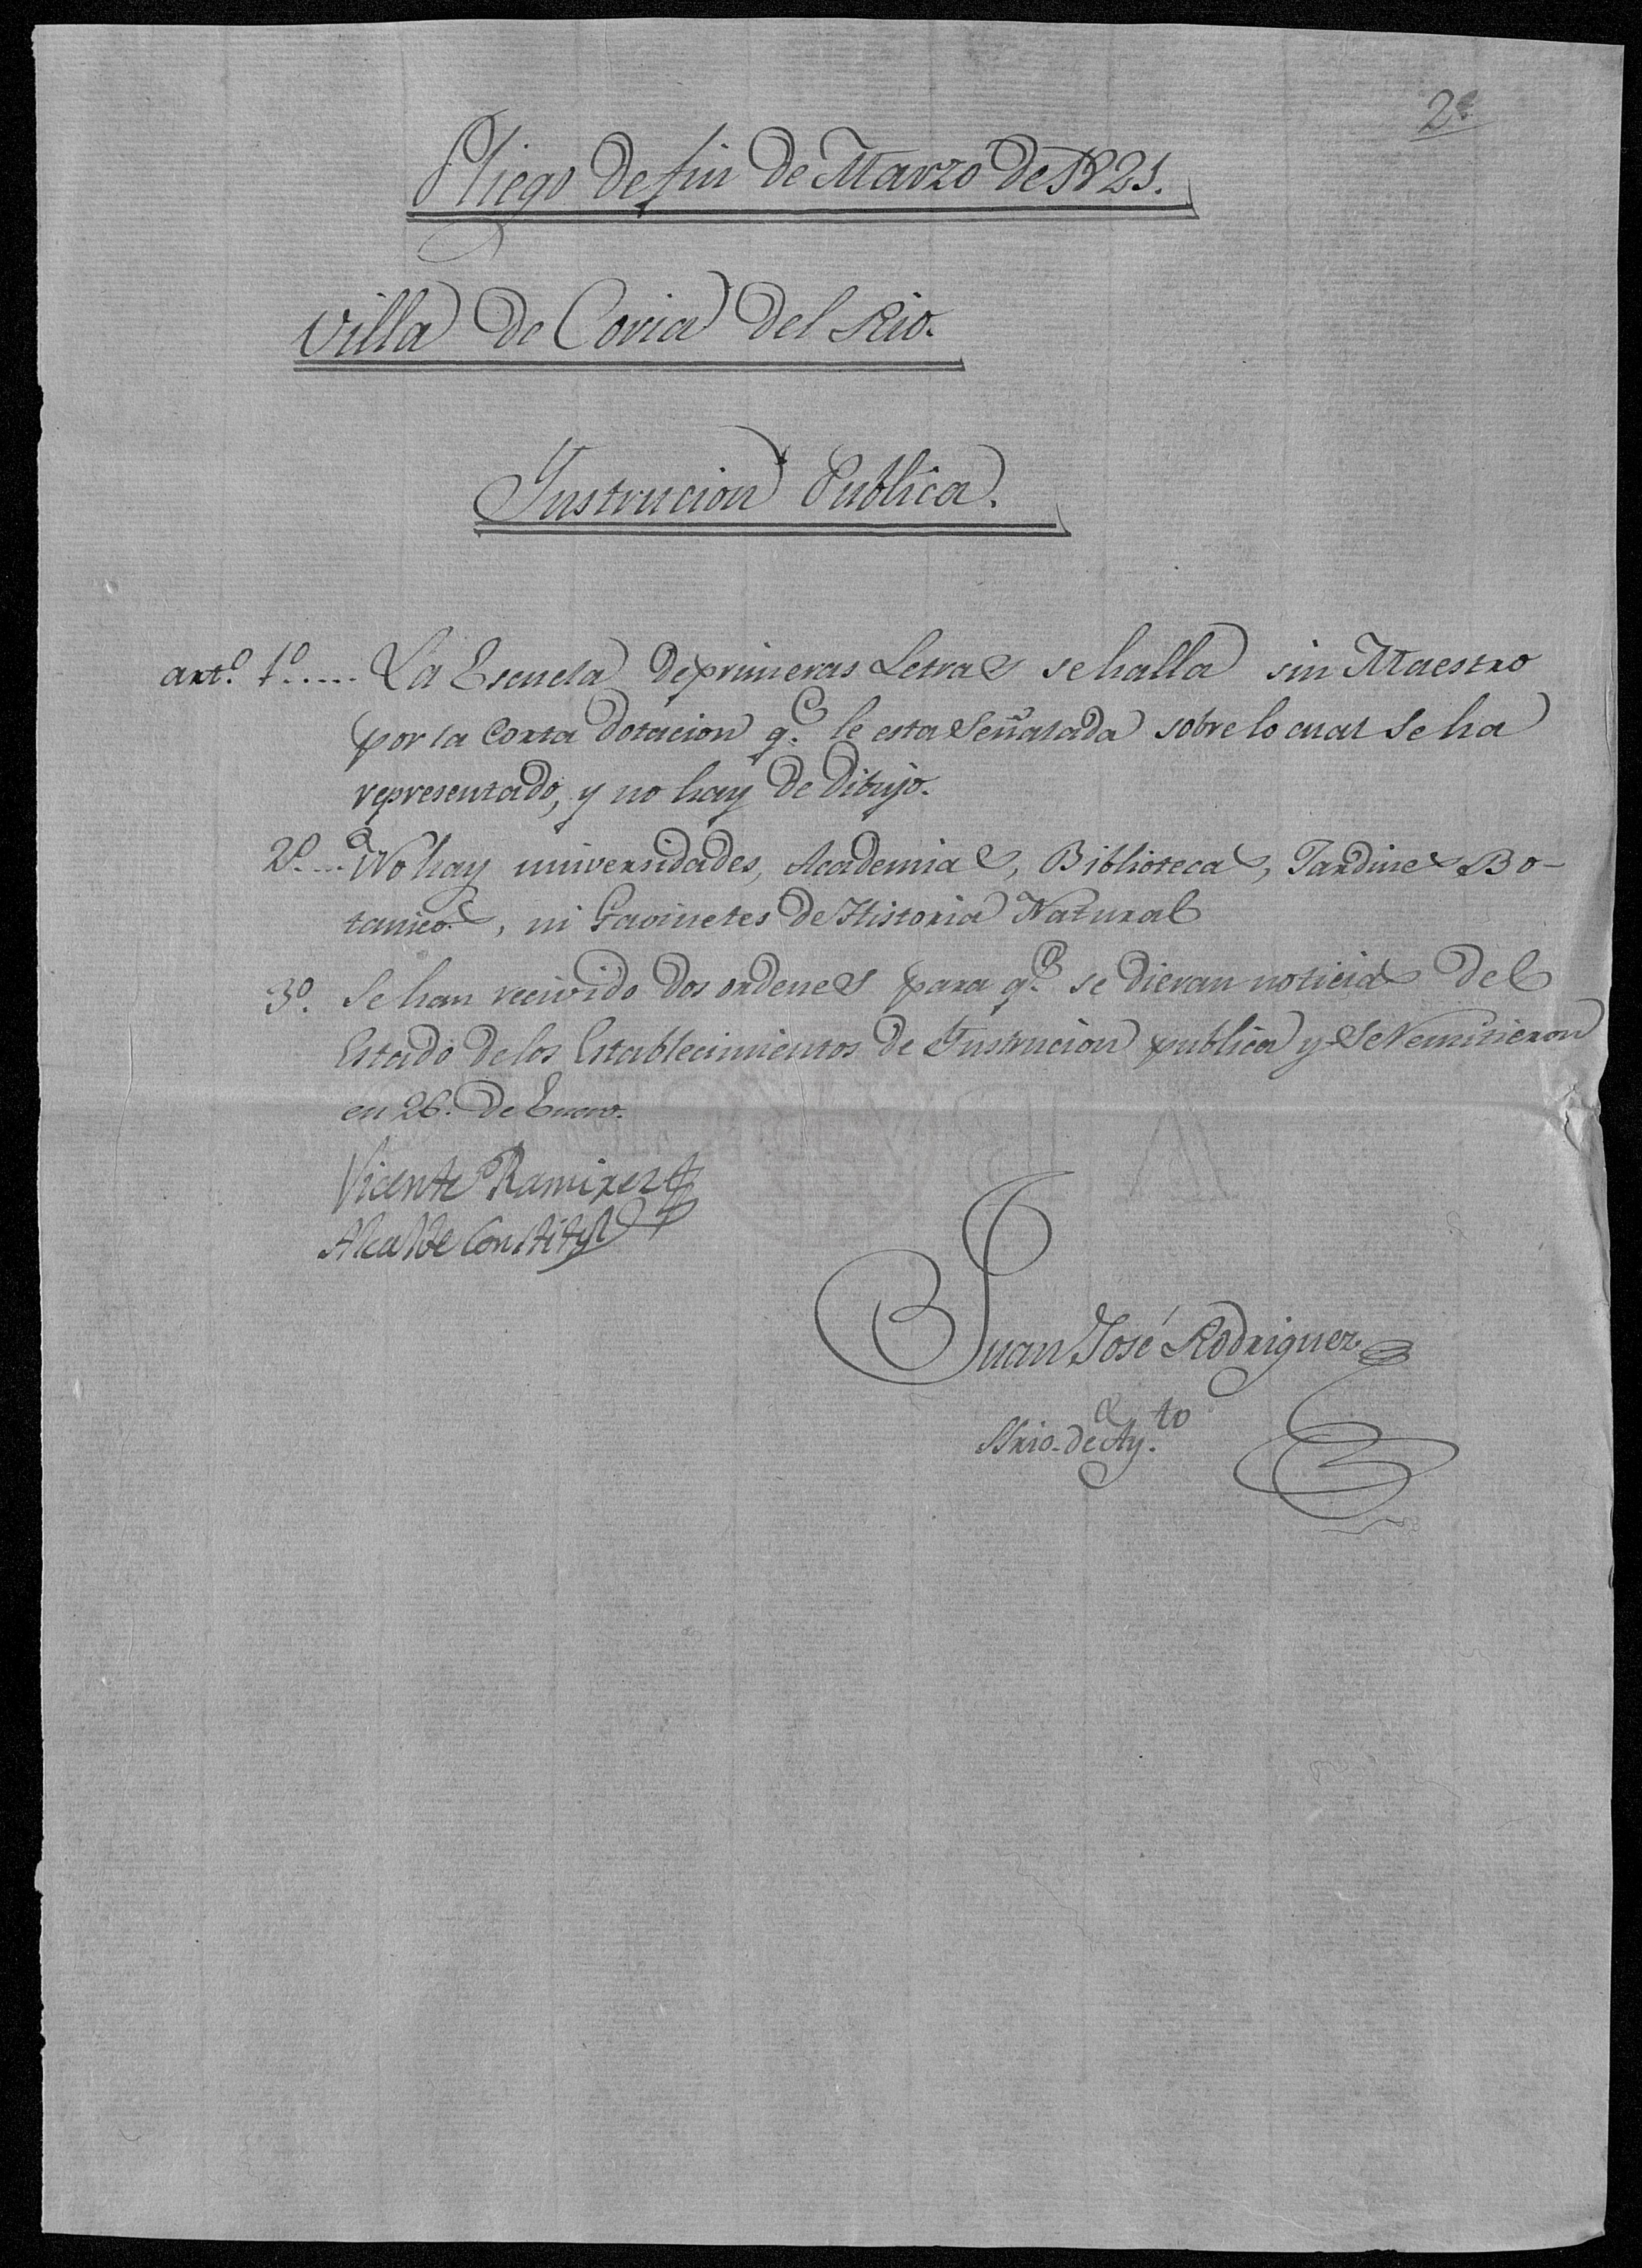 2º
Pliego de fin de Marzo de 1821.
Villa de Coria del Rio.
Instrucion Publica.
art.º 1º..... La Escuela de primeras Letras se halla sin Maestro
por la corta dotacion q.e le esta Señalada sobre lo cual se ha
representado, y no hay de Dibujo.
2º.... No hay universidades, Academias, Bibliotecas, Jardines Bo-
tanicos, ni Gavinetes de Historia Natural
3º. Se han recivido dos ordenes para q.e se dieran noticias del
Estado de los Establecimientos de Instrucion publica y se Remitieron
en 26. de Enero.
Vicente Ramirez
Alcalde Constitl
Juan José Rodriguez
Srio. de Ay.to